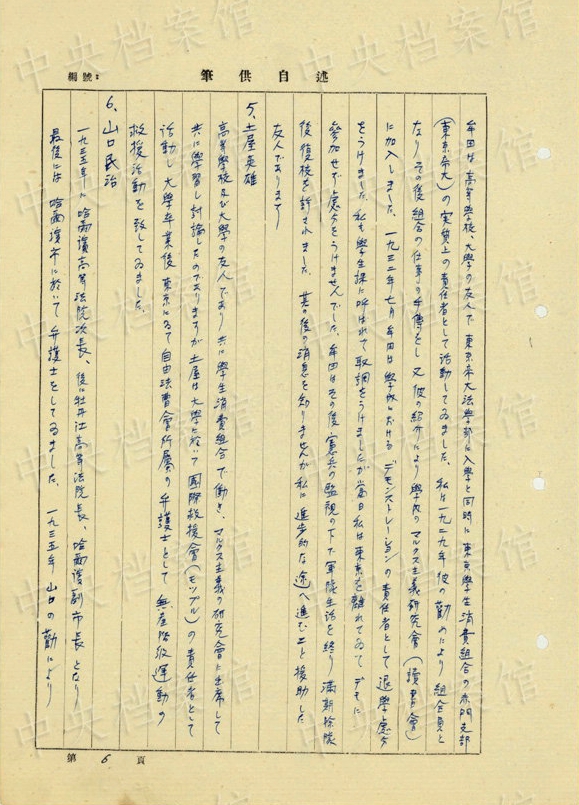 編號：
自述供筆
牟田は高等學校、大學の友人で東京帝大法學部に入學と同時に東京學生消費組合の赤門支部
（東京帝大）の実質上の責任者として活動してゐました。私は一九二九年彼の勸めにより組合員と
なりその後組合の仕事の手傳をし又彼の紹介により學内のマルクス主義研究會（讀書會）
に加入しました。一九三二年七月牟田は學内におけるデモンストレーションの責任者として退學處分
をうけました。私も學生課に呼ばれて取調をうけましたが当日私は東京を離れてゐてデモに
參加せず處分をうけませんでした。牟田はその後憲兵の監視の下で軍隊生活を終り満期除隊
後復校を許されました。其の後の消息を知りませんが私に進步的な途へ進むこと援助した
友人であります
5、土屋英雄
高等學校及び大學の友人であり共に學生消費組合で働き、マルクス主義の研究會に出席して
共に學習し討論したのでありますが土屋は大學に於いて國際救援會（モップル）の責任者として
活動し大學卒業後東京にゐて自由法曹會所屬の弁護士として無産階級運動の
救援活動を致してゐました。
6、山口民治
一九三五年に哈爾濱高等法院次長、後に牡丹江高等法院長、哈爾濱副市長となり
最後には哈爾濱市に於いて弁護士をしてゐました。一九三五年山口の勸により
第 6 頁
中央档案馆